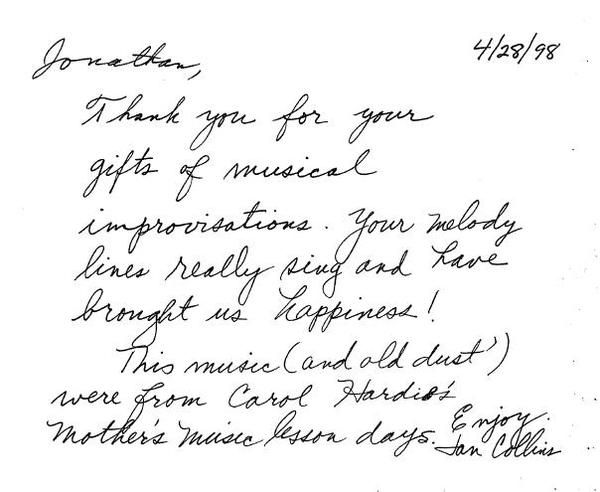 4/28/98
Jonathan,
Thank you for your
gifts of musical
improvisations. Your melody
lines really sing and have
brought us happiness!
This music (and old dust')
were from Carol Hardie's
Mother's music lesson days. Enjoy.
Jan Collins